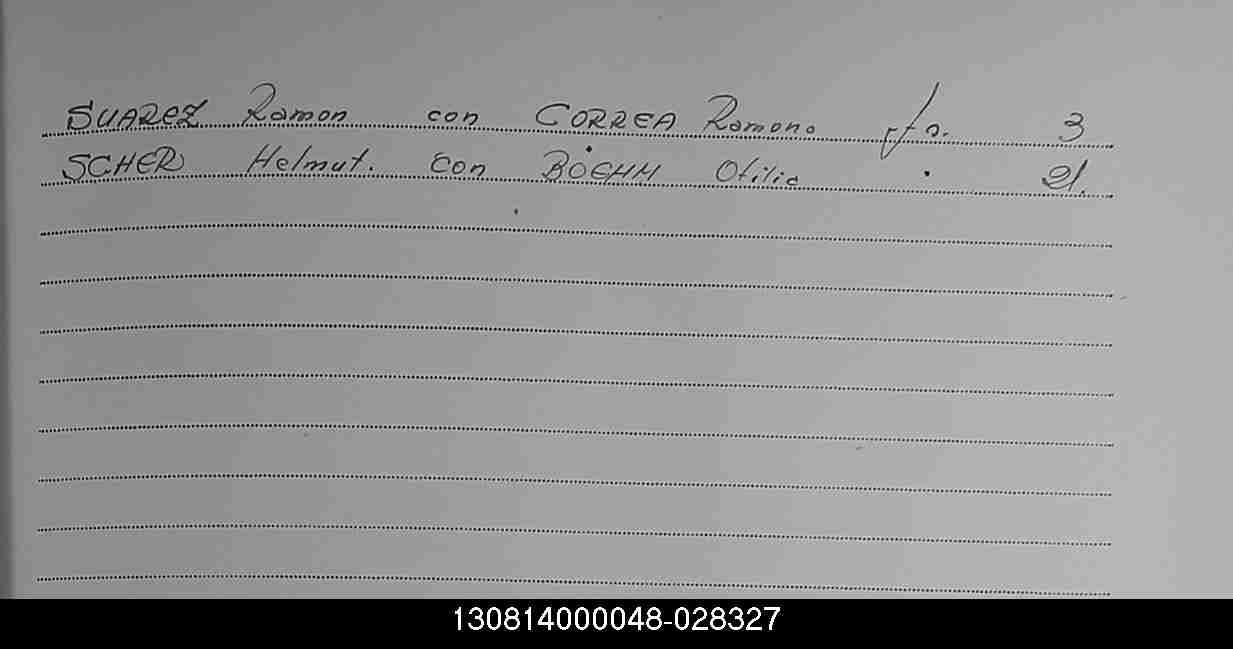 SUAREZ Ramon con CORREA Ramona fs. 3
SCHER Helmut. con BÖEHM Otilia . 21.
130814000048-028327